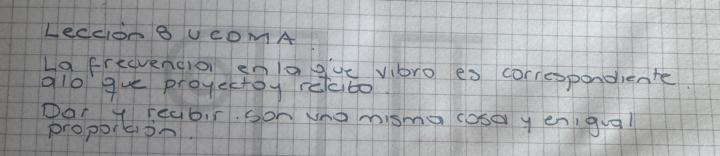 Lección 8 UCOMA.
La frecuencia en la que vibro es correspondiente.
alo que proyectoy recibo.
Dar y recibir. son una misma cosa y en igual
proporción.